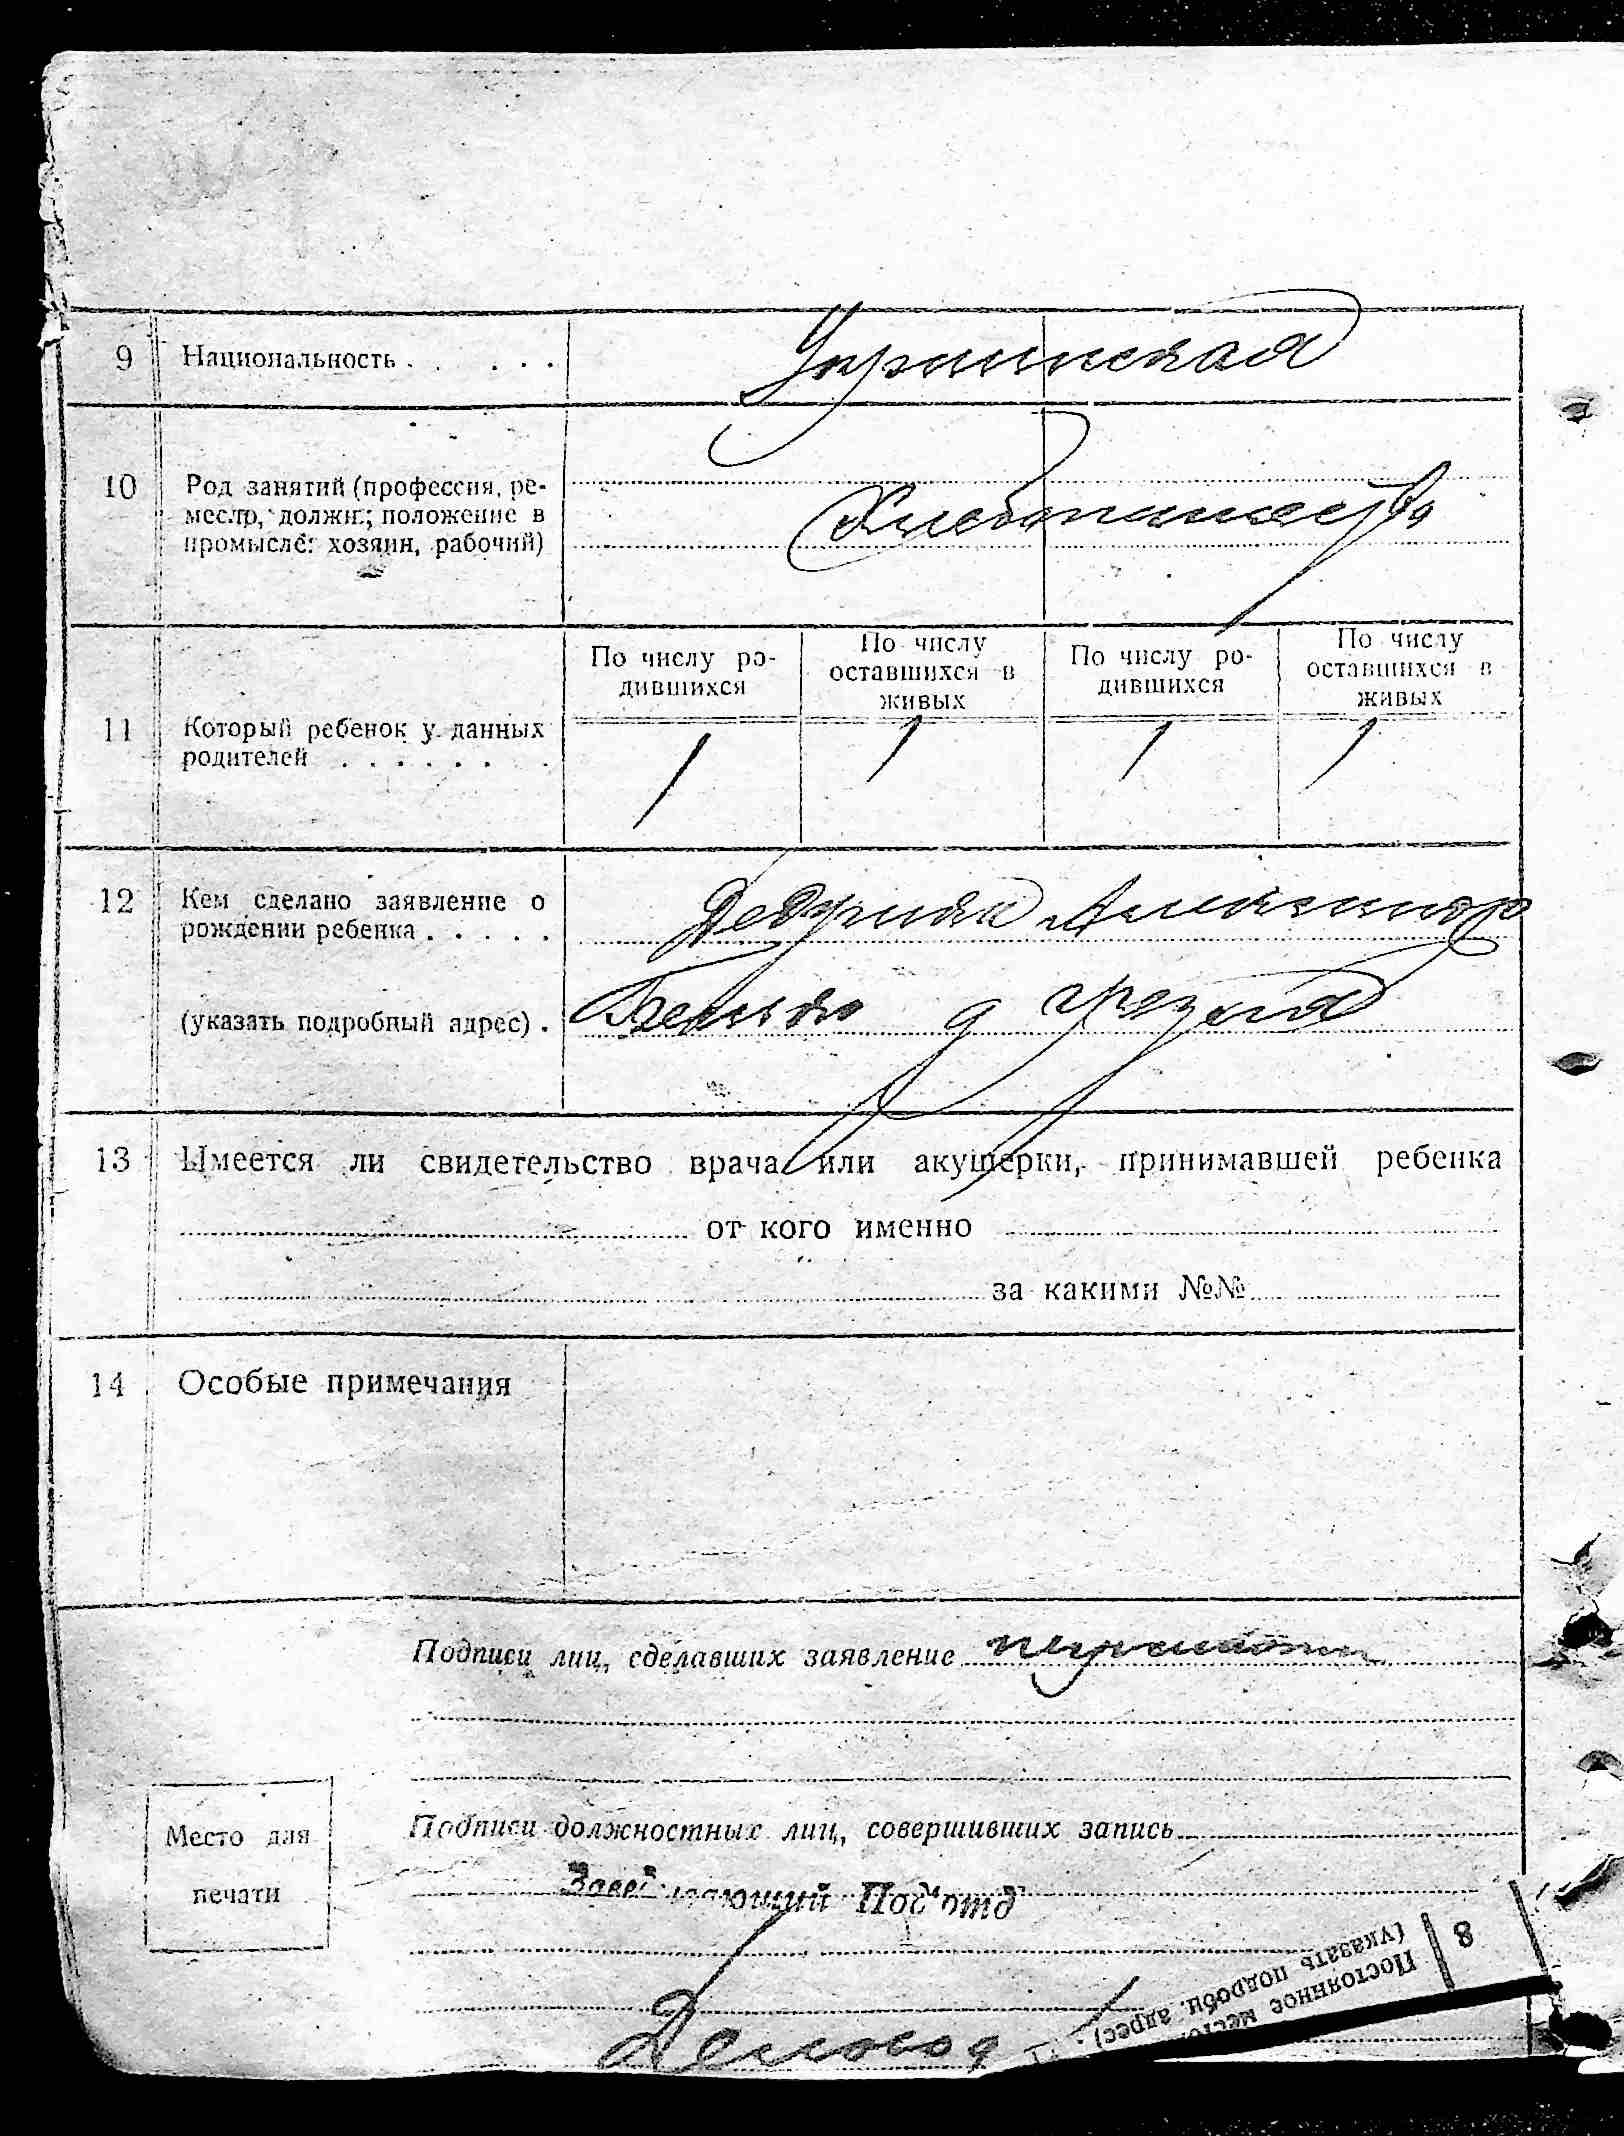 9 Национальность . . . . . Украинская
10 Род занятий (профессия, ре-
месло, должн.; положение в
промысле: хозяин, рабочий)
Хлебопашество
По числу ро-
дившихся
По числу
оставшихся в
живых
По числу ро-
дившихся
По числу
оставшихся в
живых
11 Который ребенок у данных
родителей . . . . . . .
1 1 1 1
12 Кем сделано заявление о
рождении ребенка . . . . .
Александр
(указать подробный адрес) .
13 Имеется ли свидетельство врача или акушерки, принимавшей ребенка
от кого именно
за какими №№
14 Особые примечания
Подписи лиц, сделавших заявление
Место для
печати
Подписи должностных лиц, совершивших запись
Заведывающий Под'отд
Деловод
8 Постоянное место
(указать подробн. адрес) .